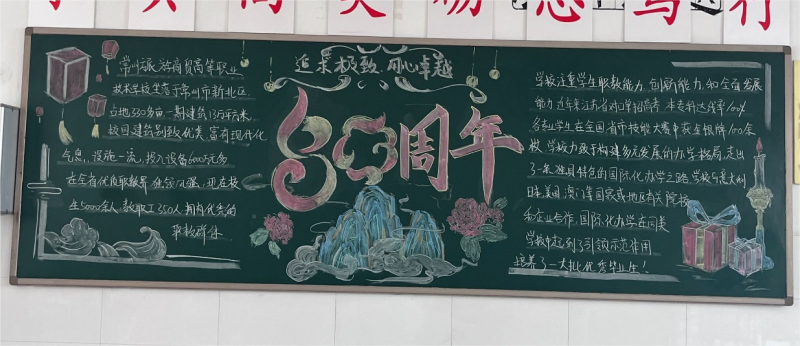 追求极致 用心卓越
80周年
常州旅游商贸高等职业
技术学校坐落于常州市新北区
占地330多亩一期建筑13万平方米
校园建筑别致优美 富有现代化
气息, 设施一流, 投入设备6000万多
在全省优质职教界独领风骚, 现在校
生5000余人, 教职工350人, 拥内优秀的
学校注重学生职教能力, 创新能力, 和全面发展
能力 近年江苏省对口单招高考 本专科达线率100%
各专业学生在全国省市技能大赛中获金银牌100余
校, 学校力致于构建多元发展的办学格局, 走出
了一条独具特色的国际化办学之路, 学校与意大利
日本, 美国, 澳门等国家或地区有关院校
和企业合作, 国际化办学在同类
学校中起到了引领示范作用
培养了一大批优秀毕业生!